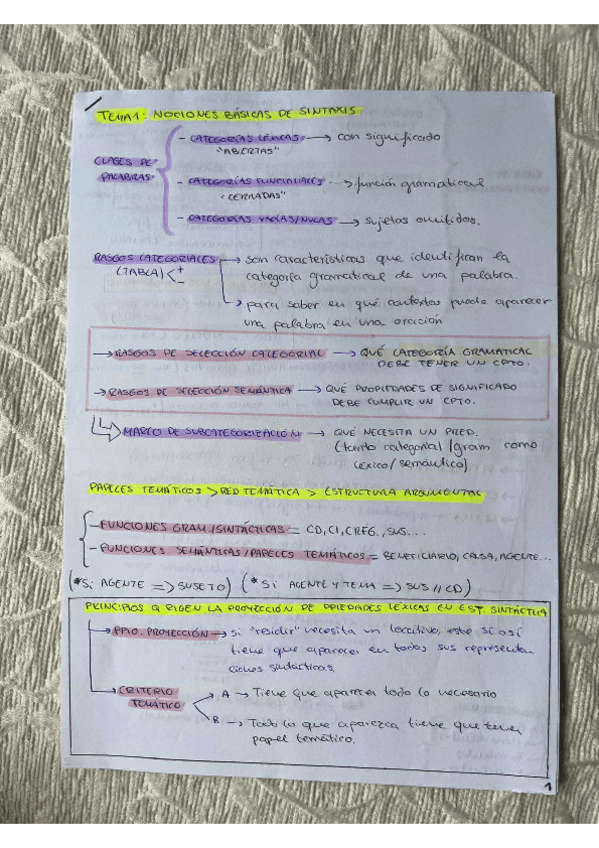 TEMA 1: NOCIONES BÁSICAS DE SINTAXIS
CLASES DE PALABRAS
- CATEGORÍAS LÉXICAS → con significado
"ABIERTAS"
- CATEGORÍAS FUNCIONALES → función gramatical
"CERRADAS"
- CATEGORÍAS VACÍAS/NULAS → sujetos omitidos.
RASGOS CATEGORIALES → son características que identifican la
(TABLA) < + categoría gramatical de una palabra.
→ para saber en qué contextos puede aparecer
una palabra en una oración
→ RASGOS DE SELECCIÓN CATEGORIAL → QUÉ CATEGORÍA GRAMATICAL
DEBE TENER UN CPTO.
→ RASGOS DE SELECCIÓN SEMÁNTICA → QUÉ PROPIEDADES DE SIGNIFICADO
DEBE CUMPLIR UN CPTO.
MARCO DE SUBCATEGORIZACIÓN → QUÉ NECESITA UN PRED.
(tanto categorial/gram como
léxico/semántico)
PAPELES TEMÁTICOS > RED TEMÁTICA > ESTRUCTURA ARGUMENTAL
- FUNCIONES GRAM/SINTÁCTICAS = CD, CI, CREG, SUS...
- FUNCIONES SEMÁNTICAS/PAPELES TEMÁTICOS = BENEFICIARIO, CAUSA, AGENTE...
(*Si AGENTE => SUJETO) (*Si AGENTE Y TEMA => SUS // CD)
PRINCIPIOS Q RIGEN LA PROYECCIÓN DE PIEDADES LÉXICAS EN EST. SINTÁCTICA
→ PPIO. PROYECCIÓN → si "residir" necesita un locativo, este sí o sí
tiene que aparecer en todas sus representa-
ciones sintácticas.
→ CRITERIO TEMÁTICO
A → Tiene que aparecer todo lo necesario
B → Todo lo que aparezca tiene que tener
papel temático.
1